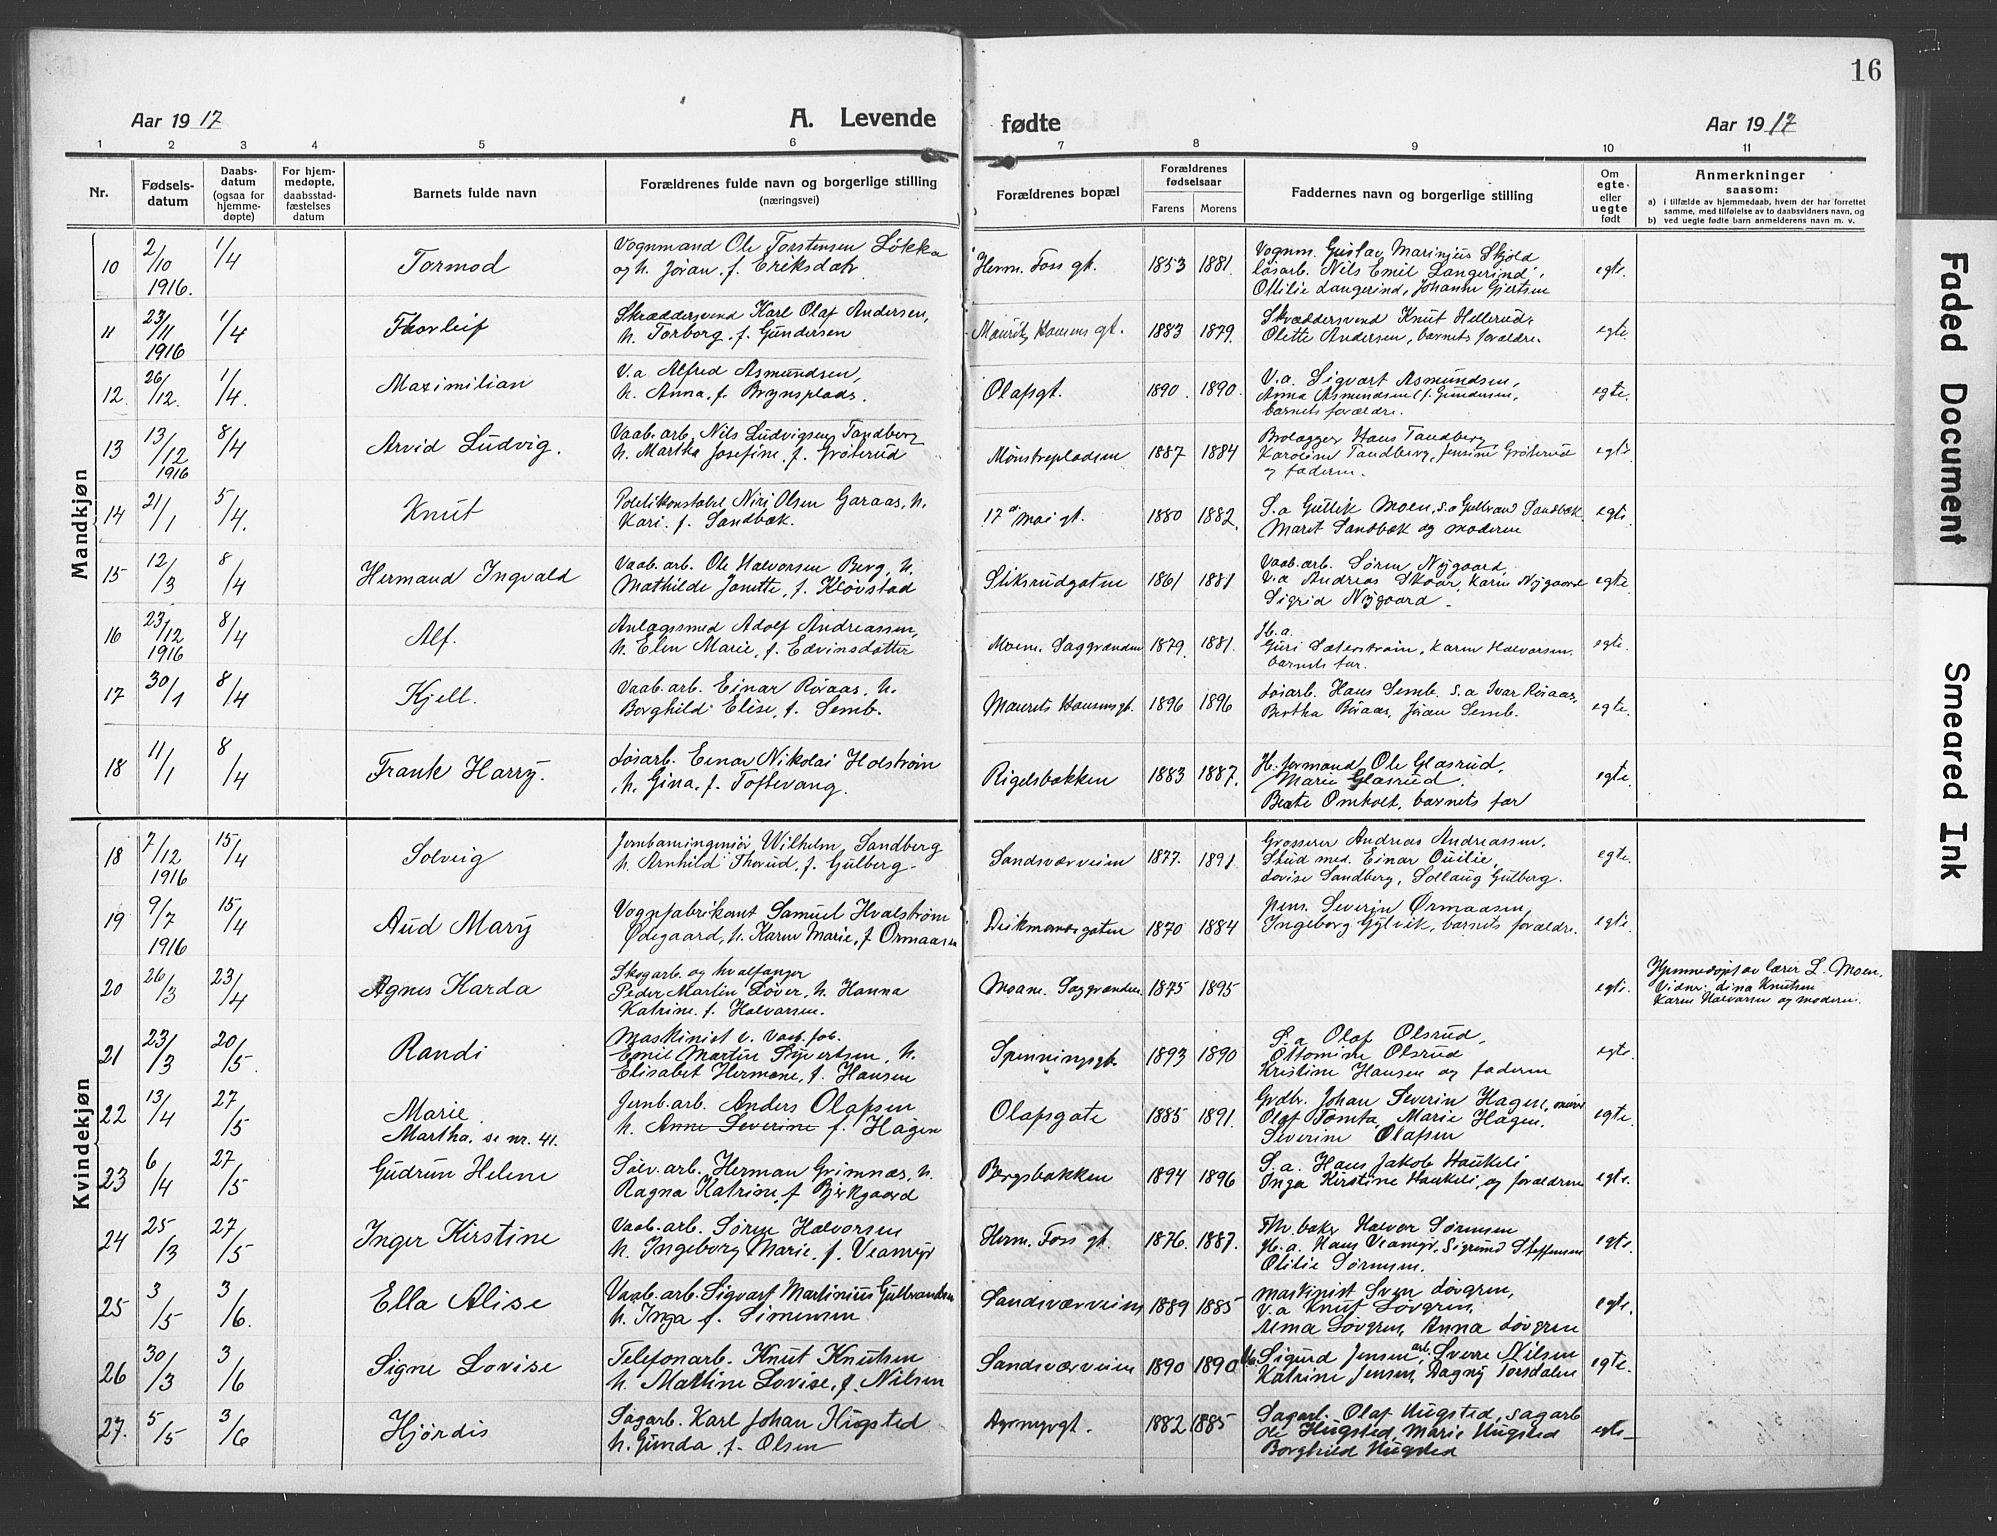 16
Aar 1917
A. Levende
fødte
Aar 1917
1 2 3 4 5 6 7 8 9 10 11
Nr.
Fødsels-
datum
Daabs-
datum
(ogsaa for
hjemme-
døpte)
For hjem-
medøpte,
daabsstad-
fæstelses
datum
Barnets fulde navn
Forældrenes fulde navn og borgerlige stilling
(næringsvei)
Forældrenes bopæl
Forældrenes
fødselsaar
Farens Morens
Faddernes navn og borgerlige stilling
Om
egte-
eller
uegte
født
Anmerkninger
saasom:
a) i tilfælde av hjemmedaab, hvem der har forrettet
samme, med tilføielse av to daabsvidners navn, og
b) ved uegte fødte barn anmelderens navn m. v.
Mandkjøn
10 2/10 1916. 1/4 Tormod
Vognmand Ole Torstensen Løkka
og h. Jøran f. Eriksdatr
Herm. Foss gt. 1853 1881.
Vognm. Gustav Marinius Skjold
løsarb. Nils Emil Langerind,
Ottilie Langerind, Johanne Gjertsen
egte.
11 23/11 1916 1/4 Thorleif
Skræddersvend Karl Olaf Andersen,
h. Torborg f. Gundersen
Mauritz Hansens gt. 1883 1879.
Skræddersvend Knut Hellerud,
Olette Andersen, barnets forældre.
egte.
12. 26/12. 1/4. Maximilian
V.a. Alfred Asmundsen,
h. Anna, f. Brynsplads.
Olafsgt. 1890. 1890.
V.a. Sigvart Asmundsen,
Anna Asmundsen f. Gundersen,
barnets forældre.
egte.
13 13/12 1916 8/4 Arvid Ludvig.
Vaab. arb. Nils Ludvigsen Tandberg
h. Martha Josefine, f. Grøterud
Mønstrepladsen 1887 1884
Brolægger Hans Tandberg,
Karoline Tandberg, Jensine Grøterud
og faderen.
egte.
14 21/1 5/4. Knut
Politikonstabel Niri Olsen Garaas, h.
Kari f. Sandbæk.
17de mai gt. 1880 1882.
S.a Gullik Moen, s.a Gulbrand Sandbæk
Marit Sandbæk og moderen
egte.
15 12/3 8/4 Hermand Ingvald
Vaab. arb. Ole Halvorsen Berg, h.
Mathilde Janette, f. Kløvstad
Sliksrudgaten 1861 1881
Vaab. arb. Søren Nygaard,
V.a Andreas Skaar, Karen Nygaard
Sigrid Nygaard.
egte
16 23/12 1916 8/4 Alf.
Anlægsmed Adolf Andreassen,
h. Elen Marie, f. Edvinsdotter
Moane. Saggrænden 1879. 1881.
H.a.
Guri Sæterstrøm, Karen Halvorsen.
barnets far.
egte.
17 30/1 8/4 Kjell.
Vaab. arb. Einar Røraas, h.
Borghild Elise, f. Semb.
Maurits Hansensgt. 1896 1896
Løsarb. Hans Semb. s.a Ivar Røraas,
Bertha Røraas, Jøran Semb.
egte.
18 11/1 8/4 Frank Harry.
Løsarb. Einar Nikolai Holstrøm
h. Gina, f. Toftevang.
Rigelsbakken 1883 1887.
H. formand Ole Glasrud,
Marie Glasrud.
Beate Omholt, barnets far
egte.
Kvindekjøn
18 7/12 1916 15/4 Solveig
Jernbaneingeniør Wilhelm Sandberg
h. Arnhild Thorud, f. Gulberg.
Sandsværveien 1877. 1891.
Grosserer Andreas Andreassen,
Stud med. Einar Ouilie,
Lovise Sandberg, Sollaug Gulberg.
egte.
19 9/7 1916 15/4 Aud Mary
Vognfabrikant Samuel Hvalstrøm
Ødegaard, h. Karen Marie, f. Ormaasen
Dickmansgaten 1870 1884
pens. Severin Ørmaasen,
Ingeborg Gylvik, barnets forældre.
egte.
20 26/3 23/4 Agnes Harda
Skogarb. og hvalfanger
Peder Martin Løver, h. Hanna
Katrine f. Halvorsen.
Moane. Saggrænden. 1875 1895
egte.
Hjemmedøpt av lærer L. Moen.
Vidner: Lina Knutsen
Karen Halvorsen og moderen.
21 23/3 20/5. Randi
Maskinist v. Vaab. fab.
Emil Martin Syvertsen, h.
Elisabet Hermane, f. Hansen
Spinningsgt. 1893 1890
S.a Olaf Olsrud,
Ottomine Olsrud
Kristine Hansen og faderen
egte.
22 13/4 27/5 Marie.
Martha, se nr. 41.
Jernb. arb. Anders Olafsen
h. Anne Severine f. Hagen
Olafsgate 1885 1891.
Gvdbr. Johan Severin Hagen,
Olaf Tomta, Marie Hagen.
Severine Olafsen
egte.
23 6/4 27/5 Gudrun Helene
Sølv. arb. Herman Grimnæs, h.
Ragna Katrine f. Bjerkgaard
Bergsbakken 1894 1896
S.a. Hans Jakob Haukeli
Inga Kirstine Haukeli, og forældrene
egte.
24 25/3 27/5 Inger Kirstine
Vaab. arb. Søren Halvorsen
h. Ingeborg Marie, f. Veamyr
Herm. Foss gt. 1876. 1887.
Thv. bake Halvor Sørensen
H.a. Hans Veamyr, Sigrund Steffensen
Otilie Sørensen.
egte.
25 3/5 3/6. Ella Alise
Vaab. arb. Sigvart Martinius Gulbrandsen
h. Inga f. Simensen
Sandsværveien 1889 1885
Maskinist Sven Løvgren,
V.a Knut Løvgren,
Alma Løvgren, Anna Løvgren
egte.
26 30/3 3/6 Signe Lovise
Telefonarb. Knut Knutsen
h. Martine Lovise, f. Nilsen
Sandsværveien 1890 1890
Sigurd Jensen arb. Sverre Nilsen
Katrine Jensen, Dagny Torsdalen
egte.
27. 5/5 3/6 Hjørdis
Sagarb. Karl Johan Hugsted
h. Gunda, f. Olsen
Aasmyrgt. 1882. 1885
Sagarb. Olaf Hugsted, sagarb
Ole Hugsted, Marie Hugsted
Borghild Hugsted
egte
Faded Document
Smeared Ink